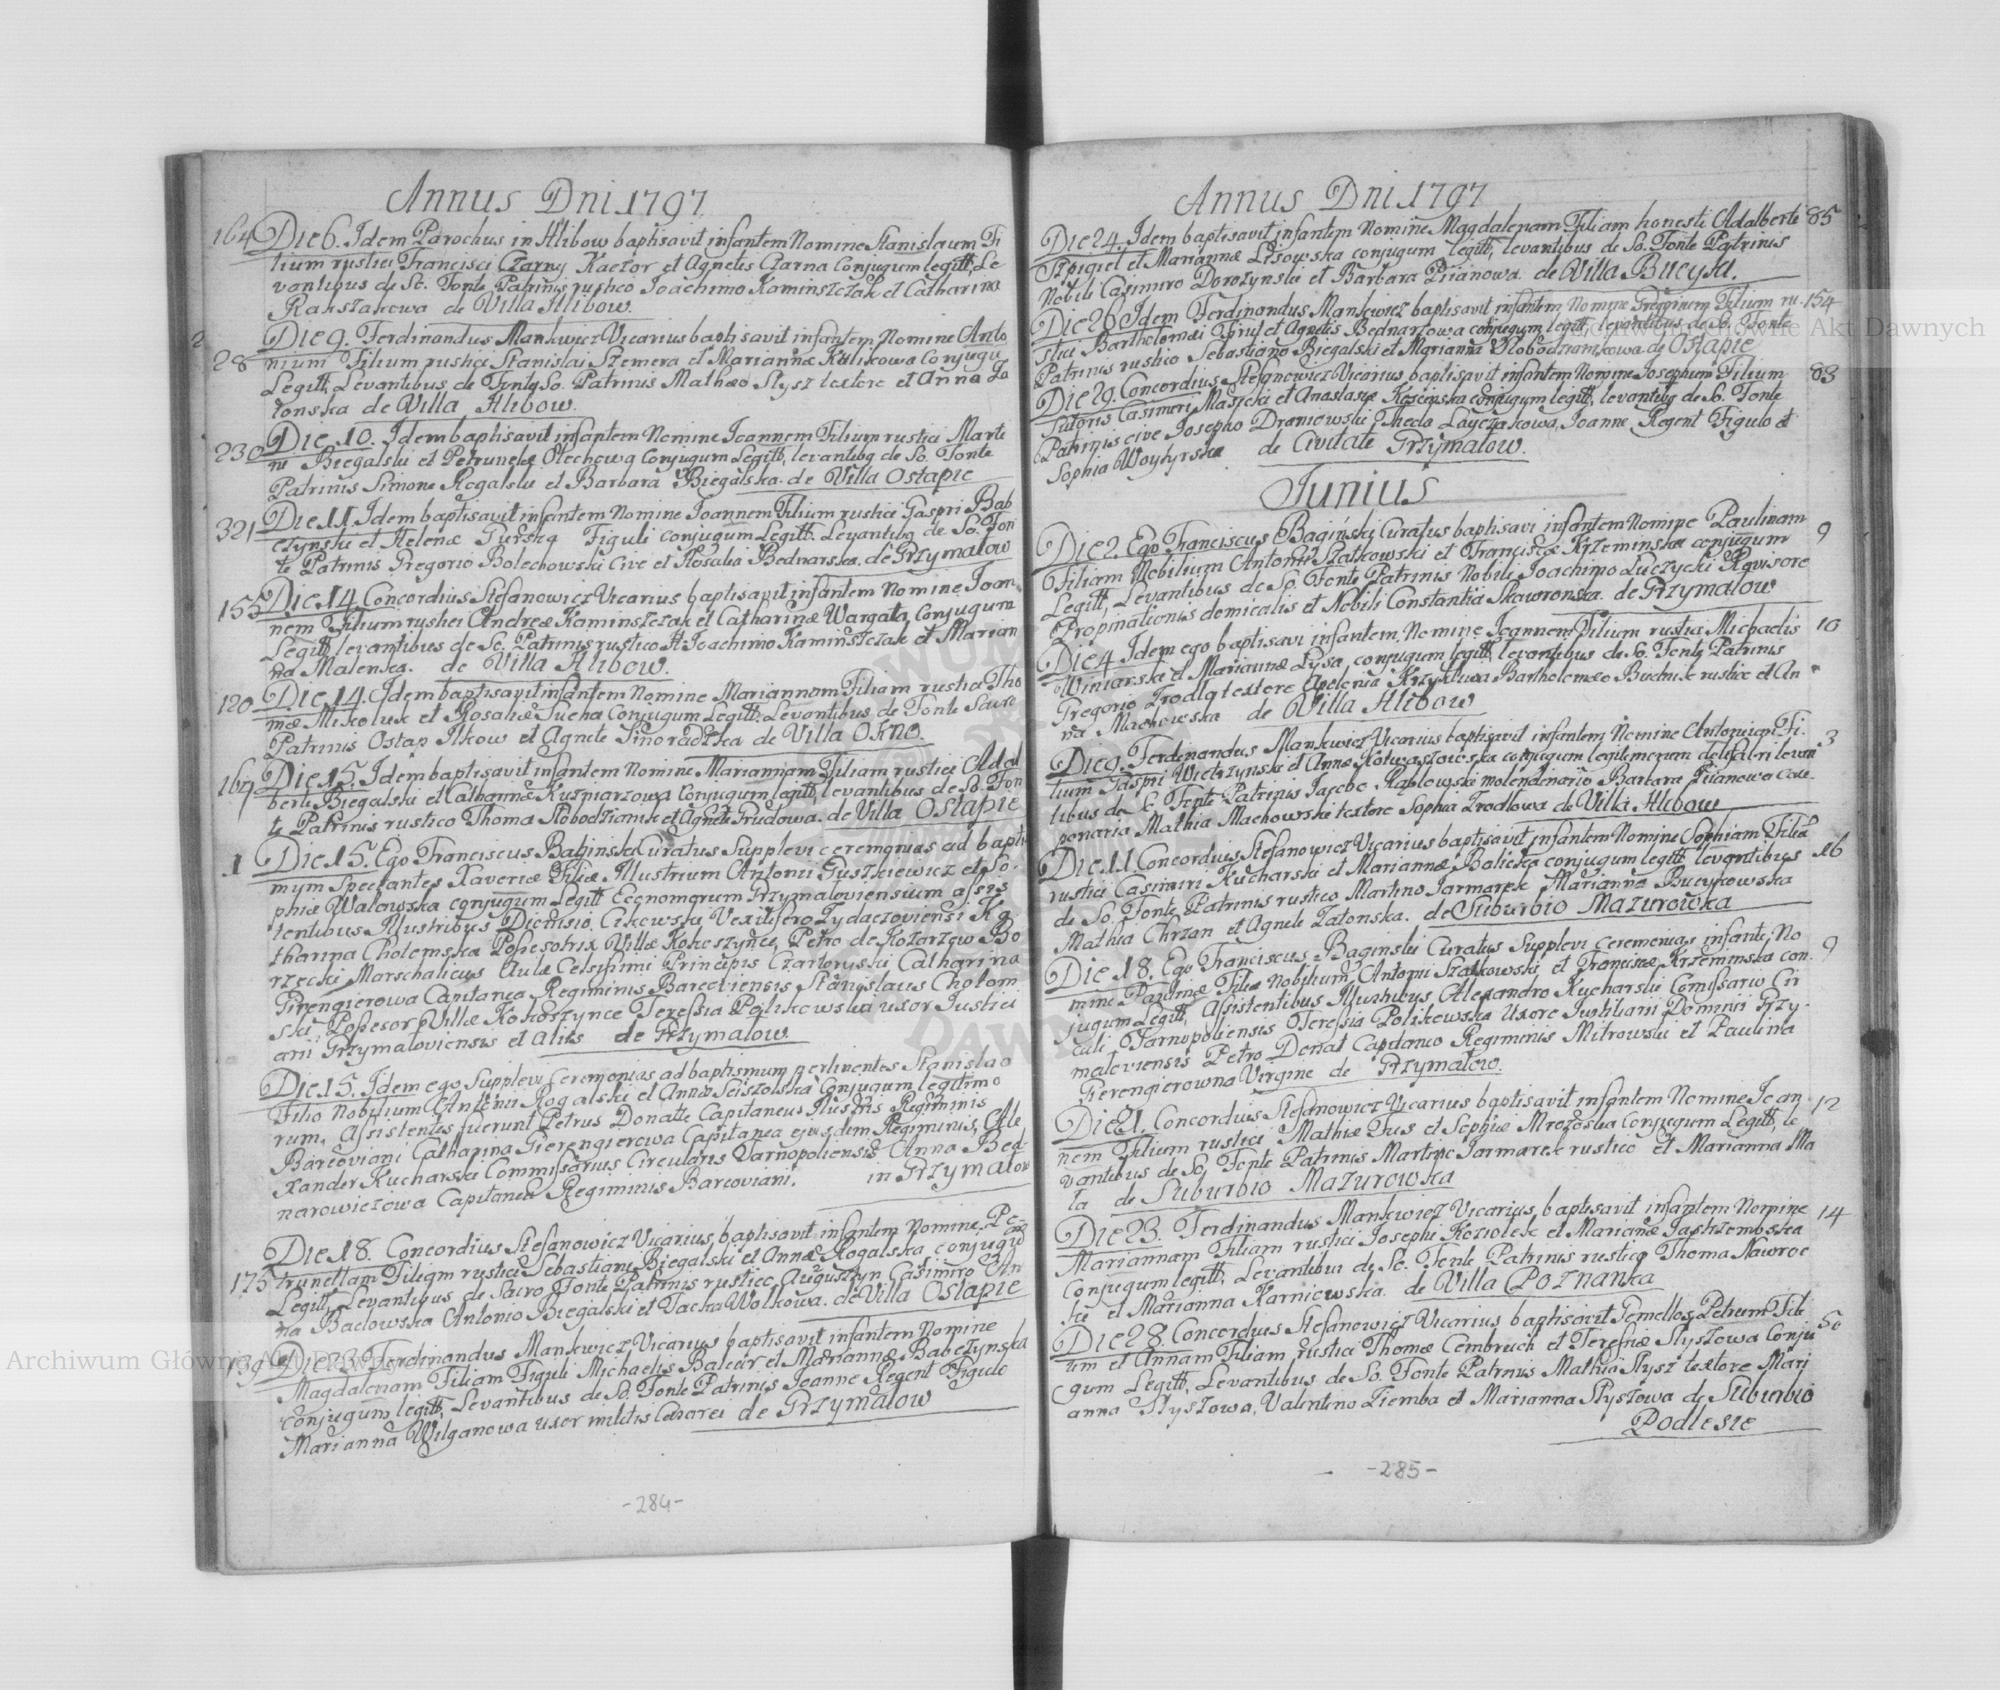 Annus Dni 1797
164 Die 6. Idem Parochus in Hlibow baptisavit infantem Nomine Stanislaum Fi
lium rustici Francisci Czarny Kaczor et Agnetis Czarna Conjugum legitt, Le
vantibus de So. Fonte Patrinis rustico Joachimo Kaminszczak et Catharina
Rakszakowa de Villa Hlibow.
2 Die 9. Ferdinandus Mankwicz Vicarius baptisavit infantem Nomine Anto
28 nium Filium rustici Stanislai Szemera et Mariannæ Kulikowa Conjugu
Legitt, Levantibus de Fonte So. Patrinis Mathæo Slysz textore et Anna La
tonska de Villa Hlibow.
230 Die 10. Idem baptisavit infantem Nomine Joannem Filium rustici Marti
ni Biegalski et Petrunelæ Olechowa Conjugum Legitt, levantibg de So. Fonte
Patrinis Simone Rogalski et Barbara Biegalska. de Villa Ostapie
321 Die 11. Idem baptisavit infantem Nomine Joannem Filium rustici Gaspri Bab
czynski et Helenæ Gurska Figuli conjugum Legitt. Levantibg de So. Fon
te Patrinis Gregorio Bolechowski Cive et Rosalia Bednarska. de Grzymalow
155 Die 14 Concordius Stefanowicz Vicarius baptisavit infantem Nomine Joan
nem Filium rustici Andreæ Kaminszczak et Catharinæ Wargata Conjugum
Legitt, levantibus de So. Patrinis rustico Joachimo Kaminszczak et Marian
na Malenka. de Villa Hlibow.
120 Die 14. Idem baptisavit infantem Nomine Mariannam Filiam rustici Tho
mæ Mikoluk et Rosaliæ Sucha Conjugum Legitt. Levantibus de Fonte Sacro
Patrinis Ostap Ilkow et Agnete Sinoradzka de Villa Okno.
164 Die 15. Idem baptisavit infantem Nomine Mariannam Filiam rustici Adal
berti Biegalski et Catharinæ Kuzniarzowa Conjugum legitt, levantibus de So. Fon
te Patrinis rustico Thoma Slobodzianik et Agnete Prudowa. de Villa Ostapie
1 Die 15. Ego Franciscus Baginski Curatus Supplevi ceremonias ad bapti
mum Spectantes Xaveriæ Filiæ Illustrium Antonii Guszkiewicz et So
phiæ Walowska conjugum Legitt Economorum Grzymaloviensium assis
tentibus Illustribus Dionisio Cikowski Vexilifero Zydaczoviensi Ka
tharina Cholemska Possesotrix Villæ Kokoszynce, Petro de Kozarzew Bo
rzecki Marschalicus Aulæ Celsissimi Principis Czartoryski Catharina
Girengierowa Capitanea Regiminis Barcoviensis Stanislaus Cholom
ski Possesor Villæ Kokoszynce Teressia Polikowska uxor Justici
arii Grzymaloviensis et Aliis de Grzymalow.
Die 15. Idem ego Supplevi Ceremonias ad baptismum pertinentes Stanislao
Filio Nobilium Antonii Rogalski et Annæ Sciszolska Conjugum legitimo
rum. Assistentes fuerunt Petrus Donatte Capitaneus Ilustris Regiminis
Barcoviani Catharina Gierengierowa Capitanea ejusdem Regiminis, Ale
xander Kucharski Commissarius Circularis Tarnopoliensis Anna Bed
narowiczowa Capitanea Regiminis Barcoviani. in Grzymalow
Die 18. Concordius Stefanowicz Vicarius, baptisavit infantem Nomine Pe
175 trunellam Filiam rustici Sebastiani Biegalski et Annæ Rogalska conjugu
Legitt, Levantibus de Sacro Fonte Patrinis rustico Augustyn Casimiro An
na Baclowska Antonio Biegalski et Jacka Wolkowa. de Villa Ostapie
139 Die 23. Ferdinandus Mankwicz Vicarius baptisavit infantem Nomine
Magdalenam Filiam Figuli Michaelis Balcar et Mariannæ Babczynska
conjugum legitt, Levantibus de So. Fonte Patrinis Joanne Regent Figulo
Marianna Wilganowa uxor militis Cæsarei de Grzymalow
-284-
Annus Dni 1797
Die 24. Idem baptisavit infantem Nomine Magdalenam Filiam honesti Adalberti 85
Szpigiel et Mariannæ Lisowska conjugum legitt, levantibus de So. Fonte Patrinis
Nobili Casimiro Dorozynski et Barbara Pianowa. de Villa Bucyki.
Die 26 Idem Ferdinandus Mankwicz baptisavit infantem Nomine Gregorium Filium ru- 154
stici Bartholomæi Firuj et Agnetis Bednarzowa conjugum legitt, levantibus de So. Fonte
Patrinis rustico Sebastiano Biegalski et Marianna Slobodzianikowa de Ostapie
Die 29. Concordius Stefanowicz Vicarius baptisavit infantem Nomine Josephum Filium 83
Sutoris Casimiri Masicki et Anastasiæ Koscinska conjugum legitt, levantibg de So. Fonte
Patrinis cive Josepho Draniowski Thecla Layczakowa, Joanne Regent Figulo et
Sophia Woytyrska de Civitate Grzymalow.
Junius
Die 2. Ego Franciscus Baginski Curatus baptisavi infantem Nomine Paulinam 9
Filiam Nobilium Antonii Szatkowski et Franciscæ Krzeminska conjugum
Legitt, Levantibus de So. Fonte Patrinis Nobili Joachimo Luczycki Revisore
Propinationis domicalis et Nobili Constantia Skawronska. de Grzymalow
Die 4 Idem ego baptisavi infantem Nomine Joannem Filium rustici Michaelis 10
Winiarski et Mariannæ Lysa, conjugum legitt, levantibus de So. Fonte Patrinis
Gregorio Zrodla textore Apolonia Krzykliwa Bartholomæo Budnik rustico et An
na Machowska de Villa Hlibow
Die 9. Ferdinandus Mankwicz Vicarius baptisavit infantem Nomine Antonium Fi- 3
lium Gaspri Wietrzynski et Annæ Kolwaszowska conjugum legitimorum de fabri levan
tibus de S. Fonte Patrinis Jacobo Kablowski molendinario Barbara Pianowa cau
ponaria Mathia Machowski textore Sophia Zrodlowa de Villa Hlibow
Die 11 Concordius Stefanowicz Vicarius baptisavit infantem Nomine Sophiam Filia 26
rustici Casimiri Kucharski et Mariannæ Bolicka conjugum legitt, levantibus
de So. Fonte Patrinis rustico Martino Jarmarek Marianna Bucykowska
Mathia Chrzan et Agnete Latonska. de Suburbio Mazurowka
Die 18. Ego Franciscus Baginski Curatus Supplevi ceremonias infanti No 9
mine Paulinæ Filiæ Nobilium Antonii Szatkowski et Franciscæ Krzeminska con
jugum Legitt, Assistentibus Illustribus Alexandro Kucharski Comissario Cir
culi Tarnopoliensis Teresia Polikowska Uxore Justitiarii Dominii Grzy
maloviensis Petro Donat Capitaneo Regiminis Mitrowski et Paulina
Gierengierowna Virgine de Grzymalow.
Die 21. Concordius Stefanowicz Vicarius baptisavit infantem Nomine Joan 12
nem Filium rustici Mathiæ Fus et Sophiæ Mrozoska Conjugum Legitt, le
vantibus de So. Fonte Patrinis Martino Jarmarek rustico et Marianna Ma
la de Suburbio Mazurowka
Die 23. Ferdinandus Mankwicz Vicarius baptisavit infantem Nomine 14
Mariannam Filiam rustici Josephi Koziolek et Mariannæ Jastrzemboska
Conjugum legitt, Levantibus de So. Fonte Patrinis rustico Thoma Nawroc
ki et Marianna Karniowska. de Villa Poznanka
Die 28 Concordius Stefanowicz Vicarius baptisavit Gemellos Petrum Fili 50
um et Annam Filiam rustici Thomæ Cembruch et Teresiæ Slyszowa Conju
gum Legitt, Levantibus de So. Fonte Patrinis Mathia Slysz textore Mari
anna Slyszowa, Valentino Ziemba et Marianna Slyszowa de Suburbio
Podlesie
-285-
Archiwum Główne Akt Dawnych
Archiwum Główne Akt Dawnych